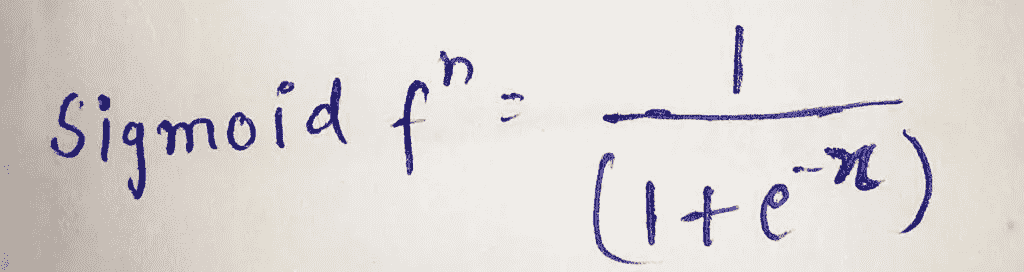 Sigmoid fⁿ = 1 / (1+e⁻ˣ)